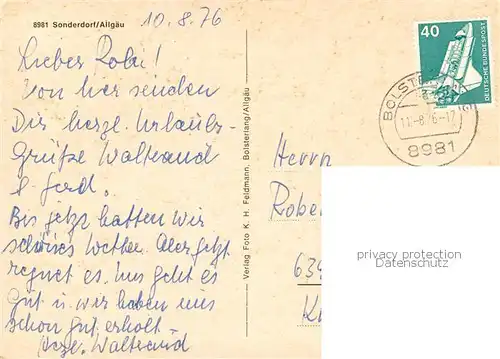 8981 Sonderdorf/Allgäu
10.8.76
Lieber Robi!
Von hier senden
Dir herzl. Urlaubs-
Grüße Waltraud
u. Ferd.
Bis jetzt hatten wir
schönes Wetter. Aber jetzt
regnet es. Uns geht es
gut u. wir haben uns
schon gut erholt -
Herzl. Waltraud
Verlag Foto K. H. Feldmann, Bolsterlang/Allgäu
40
DEUTSCHE BUNDESPOST
BOLSTE
11.-8.76-17
8981
Herrn
Rober
634
privacy protection
Datenschutz